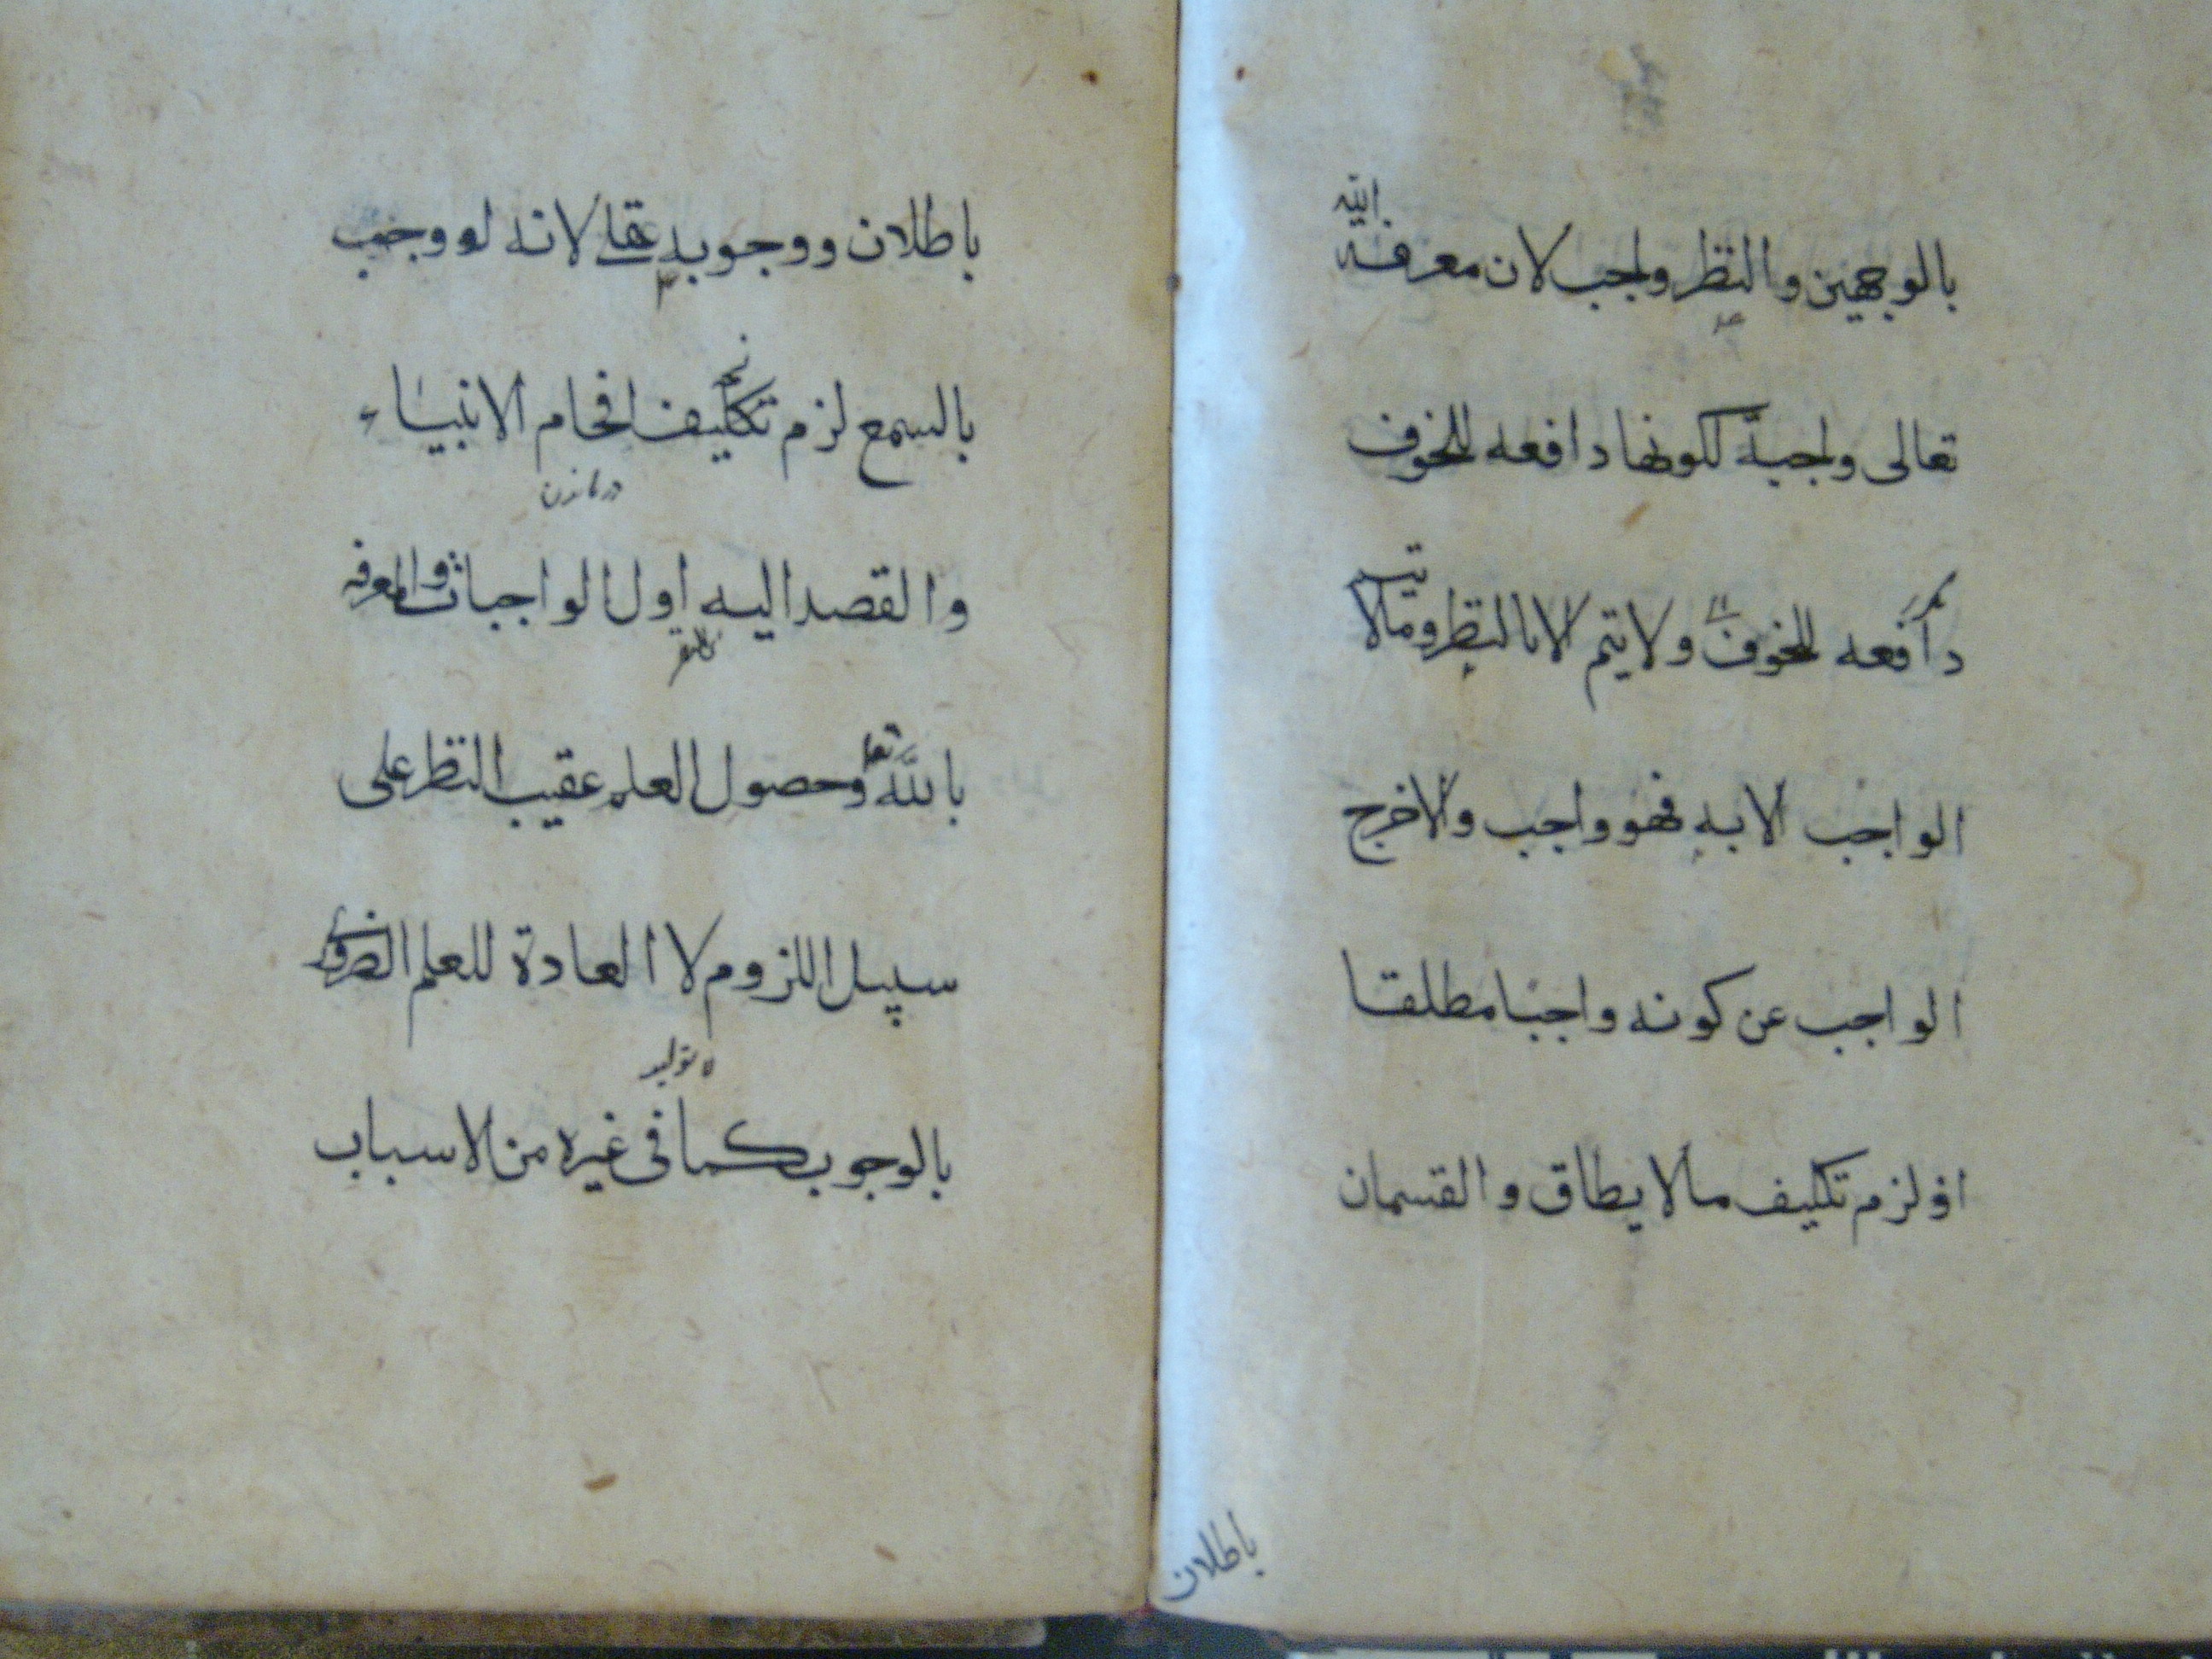 بالوجهين والنظر واجب لان معرفة الله
تعالى واجبة لكونها دافعه للخوف
دافعه للخوف ولا يتم الا بالنظر وما لا يتم
الواجب الا به فهو واجب والا خرج
الواجب عن كونه واجبا مطلقا
او لزم تكليف ما لا يطاق والقسمان
باطلان
باطلان ووجوبه عقلى لانه لو وجب
بالسمع لزم تكليف افحام الانبياء
درماندن
والقصد اليه اول الواجبات والمعرفه
بالله تعا وحصول العلم عقيب النظر على
سبيل اللزوم لا العادة للعلم الضرورى
توليد
بالوجوب كما فى غيره من الاسباب